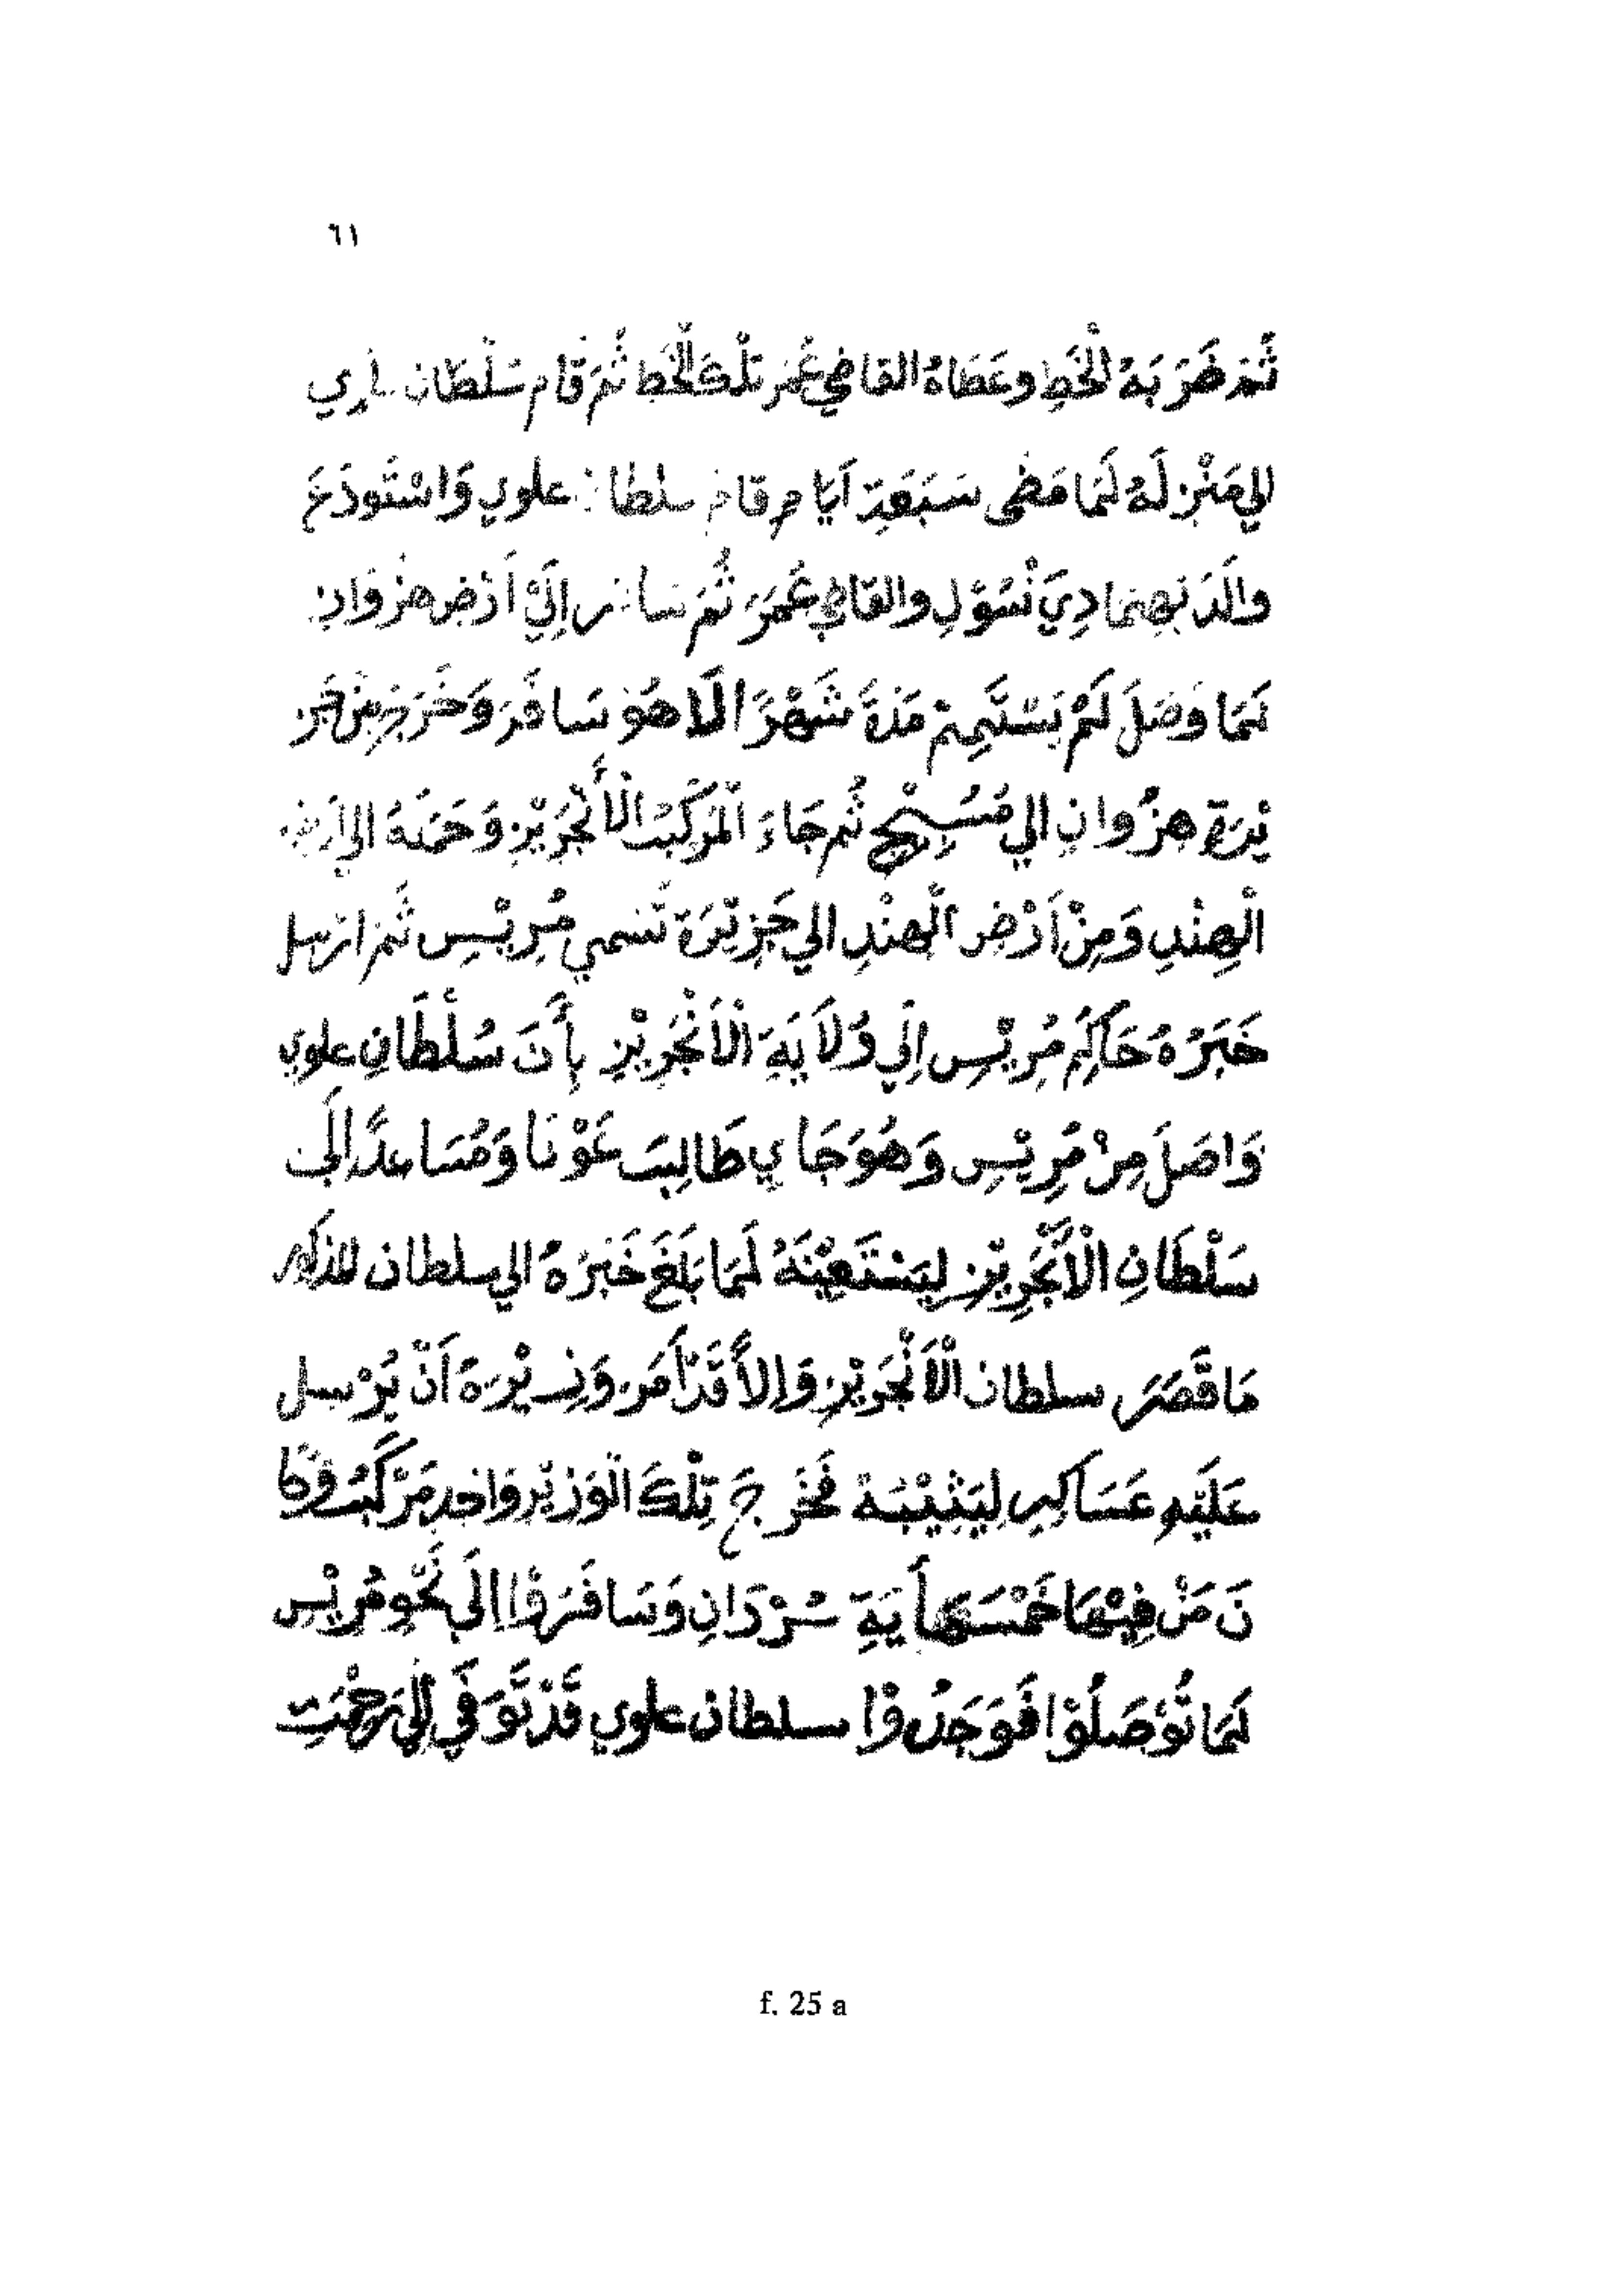 ٦١
ثُمَّ ضَرَبَهُ الْخَطِ وعَطَاهُ القاضي عُمَر تِلْكَ الْخَط ثُمَ قَام سَلْطَان
الي مَنْزِلَهُ لَمَا مَضَى سَبَعَةِ اَيَام قام سلطان علوي وَاسْتَودَعَ
والَدَيهِمَا دِيَ نْسُوْلِ والقاضي عُمَرَ ثُمَ سافر اِلَيْ اَرْضِ هنْزُوَانِ
لَمَا وَصَلَ لَمْ يَسْتَتِمِمْ مَدَةَ شَهْرًا الَا هُوَ سَافَرَ وَخَرَجَ مِنْ جَزِ
يْرَةِ هنْزُوانِ الي مُسَبِيْحِ ثُم جَاءَ الْمَرْكَبْ الْأَنْجَرِيْزِ وَحَمَلَهُ الي اَرْضِ
الْهِنْدِ وَمِنْ اَرْضِ الْهِنْدِ الي جَزِيْرَة تَسمي مُرِيْسِ ثُمَ ارْسل
خَبَرُهُ حَاكِمُ مُرِيْسِ اِلَي وُلَايَةِ الْاَنْجَرِيْزِ بِأَنَ سُلْطَانِ علوي
وَاصَلَ مِنْ مُرِيْسِ وَهُوَ جَاي طَالِبَ عَوْنَا وَمُسَاعِدًا اِلَى
سَلْطَانِ الْاَنْجَرِيْزِ لِيَسْتَعِيْنَهُ لَمَا بَلَغَ خَبَرُهُ الي سلطان المذكور
مَا قَصَرَ سلطان الْاَنْجَرِيْزِ وَاِلاَّ قَدْ اَمَرَ وَزِيْرَهُ اَنْ يُرْسِل
عَلَيْهِ عَسَاكِرِ لِيَثِيْبَهُ فَخَرَجَ تِلْكَ الْوَزِيْرِ وَاحِدِ مَرْكَبُ وَكَا
نَ مَنْ فِيْهَا خَمْسَمِأَيَةِ سَرْدَانِ وَسَافَرَوْا اِلَى نَحْوِ مُرِيْسِ
لَمَا تُوَصَلُوْا فَوَجَدُوْا سلطان علوي قَدْ تَوَفَي اِلَى رَحْمَتِ
f. 25 a